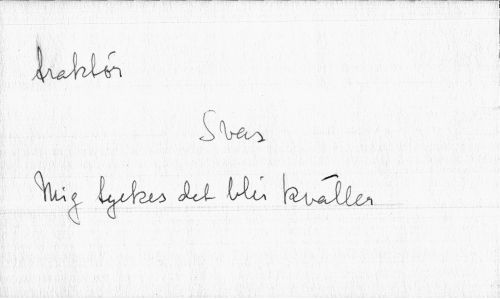 traktör
Svas
Mig tyckes det blir kväller